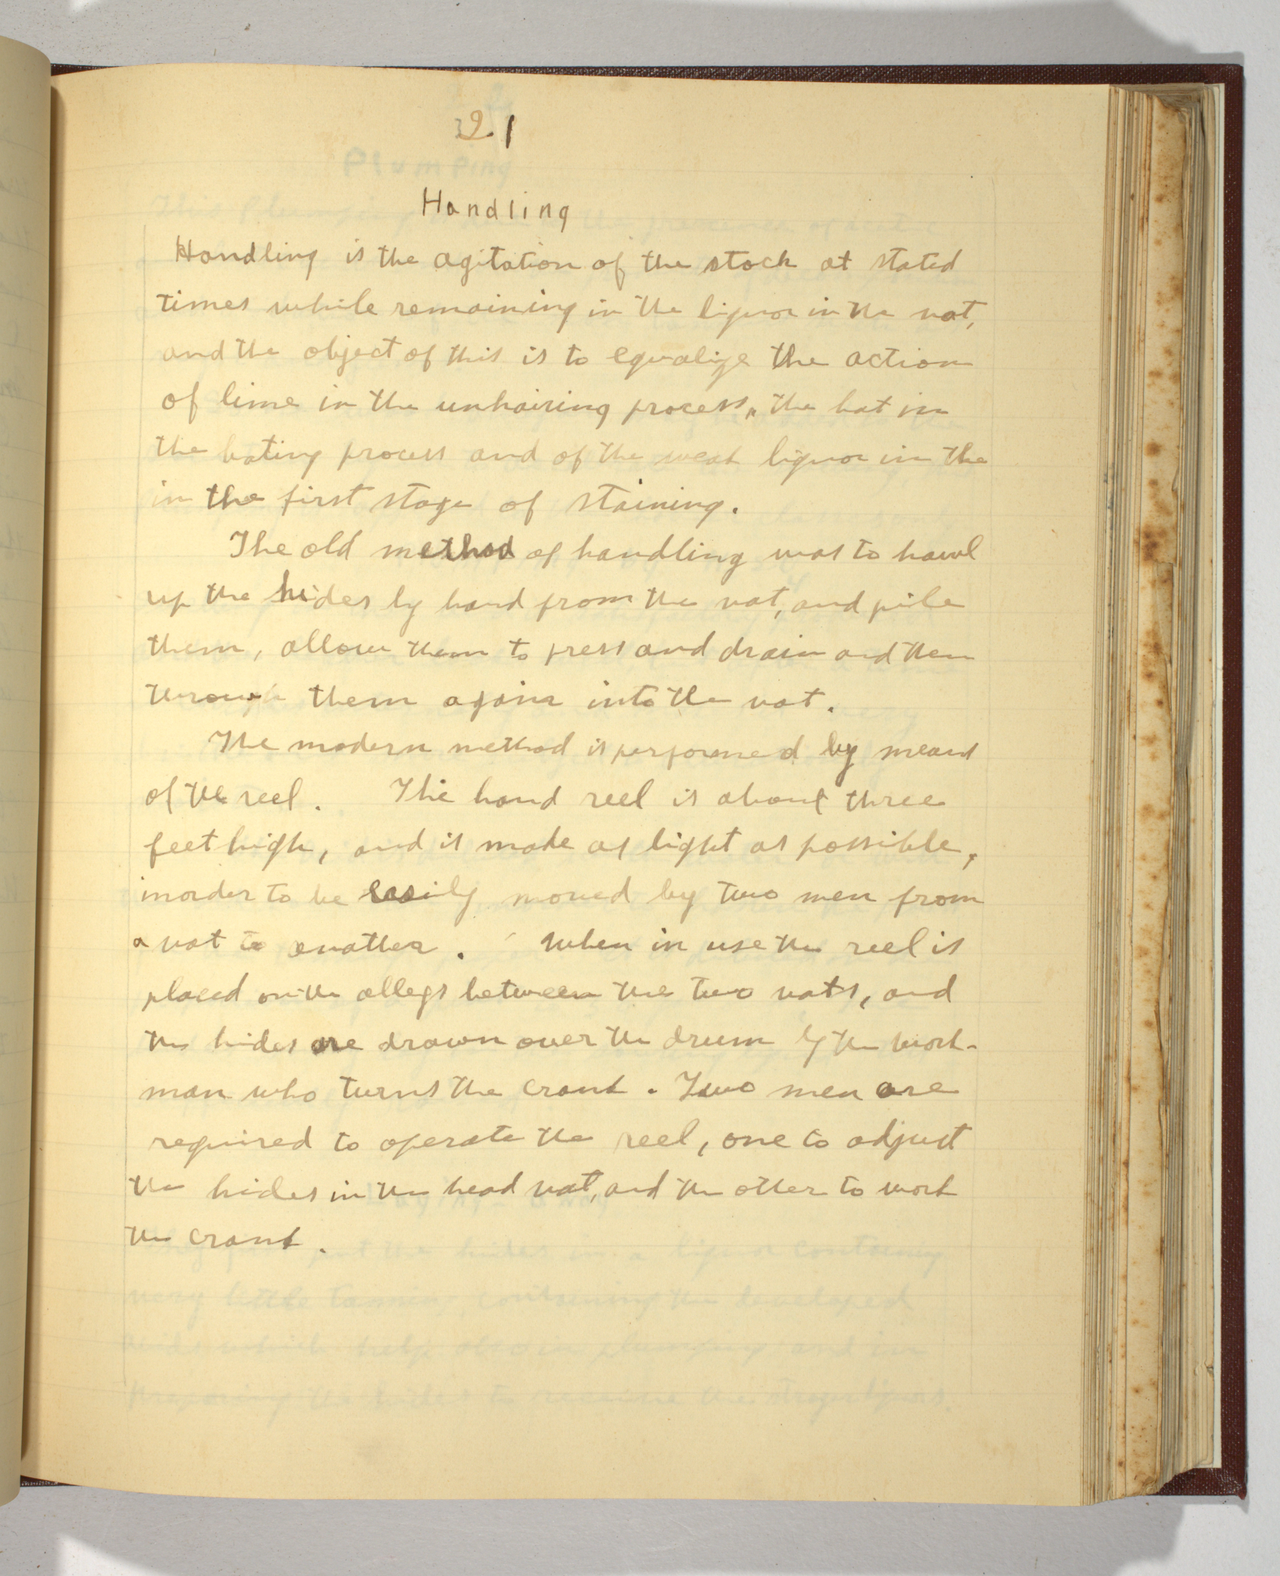 21
Handling
Handling is the agitation of the stock at stated
times while remaining in the liquor in the vat,
and the object of this is to equalize the action
of lime in the unhairing process, the bat in
the bating process and of the weak liquor in the
in the first stage of staining.
The old method of handling was to hawl
up the hides by hand from the vat, and pile
them, allow them to press and drain and then
through them again into the vat.
The modern method is performed by means
of the reel. The hand reel is about three
feet high, and is made as light as possible,
inorder to be easily moved by two men from
a vat to enother. When in use the reel is
placed on the allegs between the two vats, and
the hides are drawn over the drum by the work-
man who turns the crank. Two men are
required to operate the reel, one to adjust
the hides in the head vat, and the other to work
the crank.